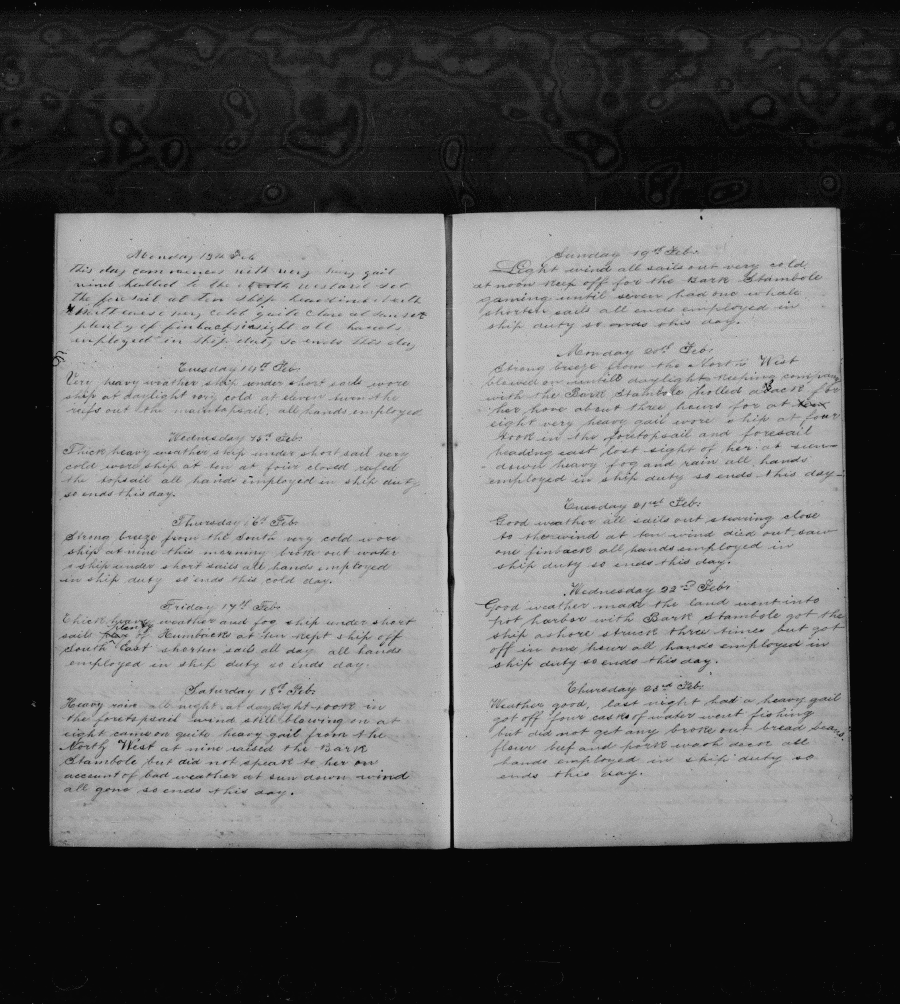 Monday 13th Feb
This day commences with very heavy gail
wind hulled to the North westard set
the fore sail at ten ship heading South
South west very cold quite Clare at sun set
plenty of finbacks in sight all hands
employed in ship duty so ends this day
Tuesday 14th Feb.
Very heavy weather ship under short sails wore
ship at daylight very cold at seven turn the
reefs out the maintopsail, all hands employed
Wednesday 15th Feb.
Thick heavy weather ship under short sail very
cold wore ship at ten at four closed reefed
the topsail all hands employed in ship duty
so ends this day.
Thursday 16th Feb.
Strong breeze from the South very cold wore
ship at nine this morning broke out water
ship under short sails all hands employed
in ship duty so ends this cold day.
Friday 17th Feb.
Thick heavy weather and fog ship under short
plenty
sails of Humbacks at ten kept ship off
South East shorten sails all day all hands
employed in ship duty so ends day.
Saturday 18th Feb.
Heavy rain all night at daylight took in
the foretopsail wind still blowing on at
eight came on quite heavy gail from the
North West at nine raised the Bark
Stambole but did not speak to her on
account of bad weather at sun down wind
all gone so ends this day.
Sunday 19th Feb.
Light wind all sails out very cold
at noon keep off for the Bark Stambole
gaming until seven had one whale
shorten sails all ends employed in
ship duty so ends this day.
Monday 20th Feb.
Strong breeze from the North West
blewed on untill daylight keeping company
with the Bark Stambole holled aback for
her hove about three hours for at
eight very heavy gail wore ship at four
took in the foretopsail and foresail
heading east lost sight of her at sun
down heavy fog and rain all hands
employed in ship duty so ends this day
Tuesday 21st Feb.
Good weather all sails out stearing close
to the wind at ten wind died out saw
one finback all hands employed in
ship duty so ends this day.
Wednesday 22nd Feb.
Good weather made the land went into
prot harbor with Bark Stambole got the
ship ashore struck three times but got
off in one hour all hands employed in
ship duty so ends this day.
Thursday 23d Feb.
Weather good, last night had a heavy gail
got off four casks of water went fishing
but did not get any broke out bread beans
flour beef and pork wash deck all
hands employed in ship duty so
ends this day.